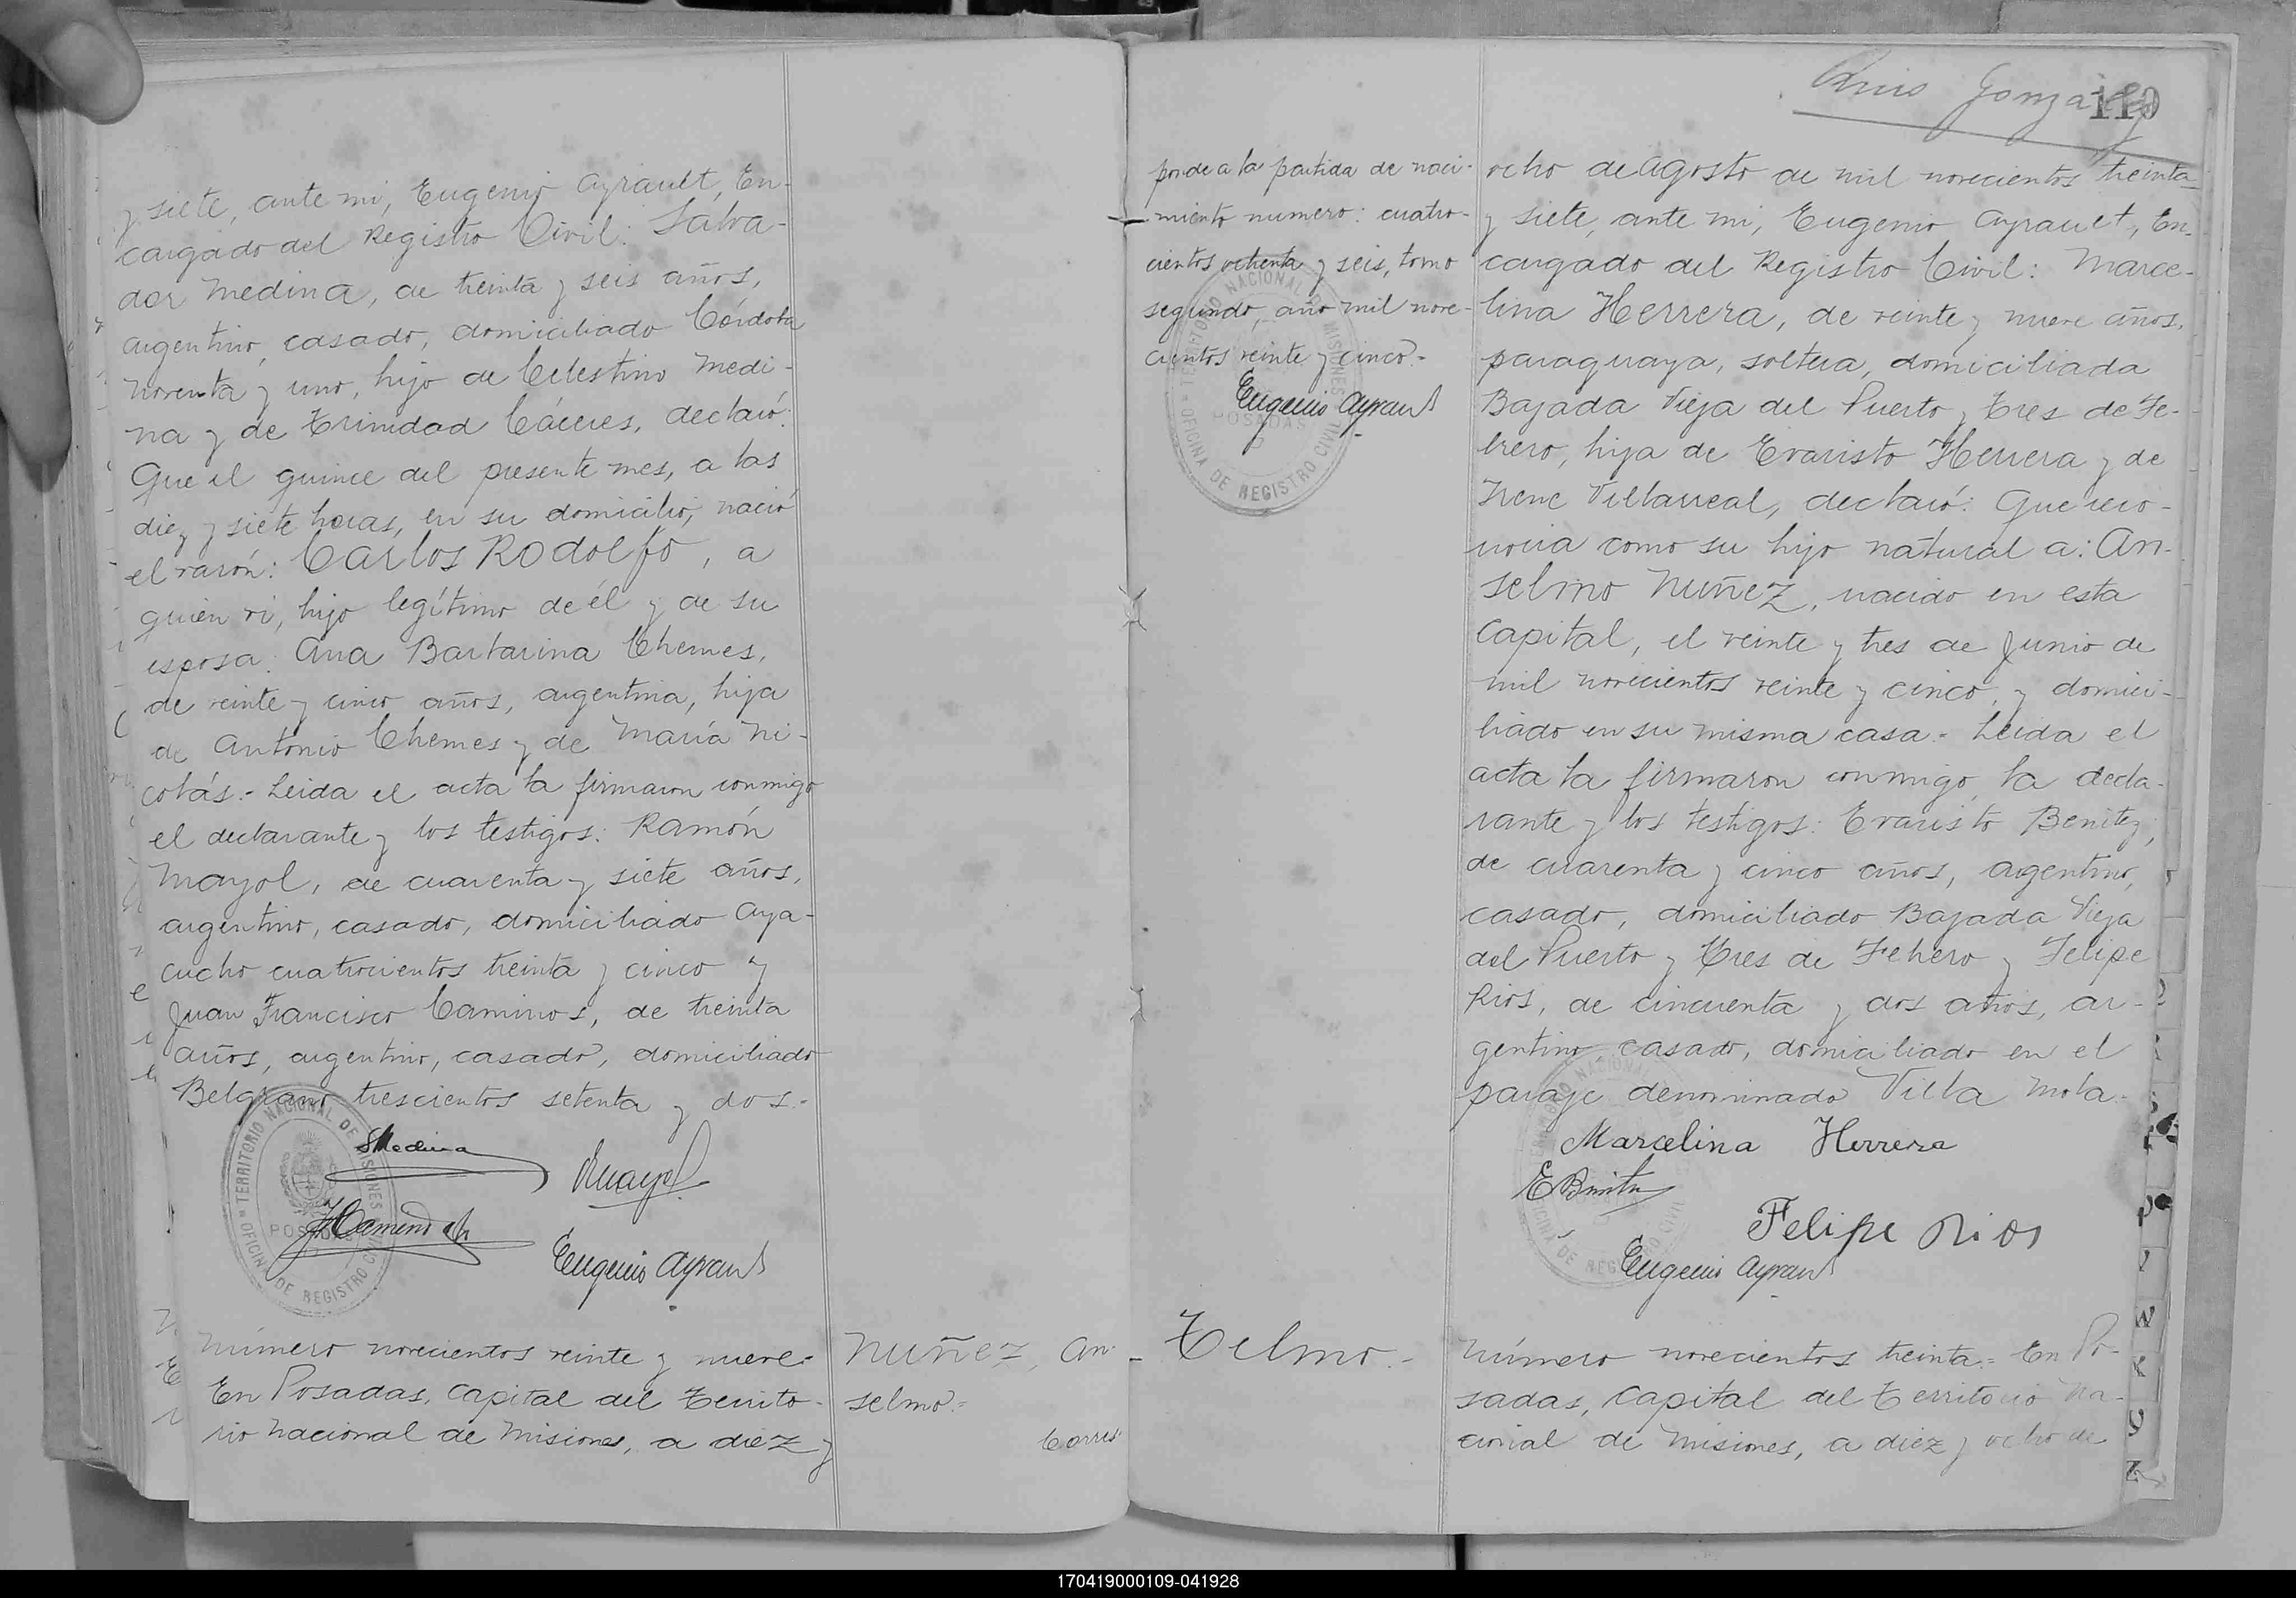 y siete, ante mi, Eugenio Ayrault, En-
cargado del Registro Civil: Salva-
dor Medina, de treinta y seis años,
argentino, casado, domiciliado Córdoba
noventa y uno, hijo de Celestino Medi-
na y de Trinidad Cáceres, declaró:
Que el quince del presente mes, a las
diez y siete horas, en su domicilio, nació
el varón: Carlos Rodolfo, a
quien vi, hijo legítimo de él y de su
esposa: Ana Barbarina Chemes,
de veinte y cinco años, argentina, hija
de Antonio Chemes y de María Ni-
colás.- Leida el acta la firmaron conmigo
el declarante y los testigos: Ramón
Mayol, de cuarenta y siete años,
argentino, casado, domiciliado Aya-
cucho cuatrocientos treinta y cinco y
Juan Francisco Caminos, de treinta
años, argentino, casado, domiciliado
Belgrano trescientos setenta y dos.-
SMedina
RMayol
Eugenio Ayrault
TERRITORIO NACIONAL DE MISIONES
POSADAS
OFICINA DE REGISTRO CIVIL
Número novecientos veinte y nueve.-
En Posadas, Capital del Territo-
rio Nacional de Misiones, a diez y
Nuñez, An-
selmo.=
Corres-
ponde a la partida de naci-
miento numero: cuatro-
cientos ochenta y seis, tomo
segundo, año mil nove-
cientos veinte y cinco.-
Eugenio Ayrault
TERRITORIO NACIONAL DE MISIONES
POSADAS
OFICINA DE REGISTRO CIVIL
Telmo.-
Gonzalez
110
ocho de Agosto de mil novecientos treinta
y siete, ante mi, Eugenio Ayrault, En-
cargado del Registro Civil: Marce-
lina Herrera, de veinte y nueve años,
paraguaya, soltera, domiciliada
Bajada Vieja del Puerto y Tres de Fe-
brero, hija de Evaristo Herrera y de
Irene Villarreal, declaró: Que reco-
nocia como su hijo natural a: An-
selmo Nuñez, nacido en esta
Capital, el veinte y tres de Junio de
mil novecientos veinte y cinco, y domici-
liado en su misma casa.- Leida el
acta la firmaron conmigo, la decla-
rante y los testigos: Evaristo Benitez,
de cuarenta y cinco años, argentino,
casado, domiciliado Bajada Vieja
del Puerto y Tres de Febrero y Felipe
Rios, de cincuenta y dos años, ar-
gentino casado, domiciliado en el
paraje denominado Villa Mola.-
Marcelina Herrera
E Benitez
Felipe Rios
Eugenio Ayrault
Número novecientos treinta.- En Po-
sadas, Capital del Territorio Na-
cional de Misiones, a diez y ocho de
170419000109-041928